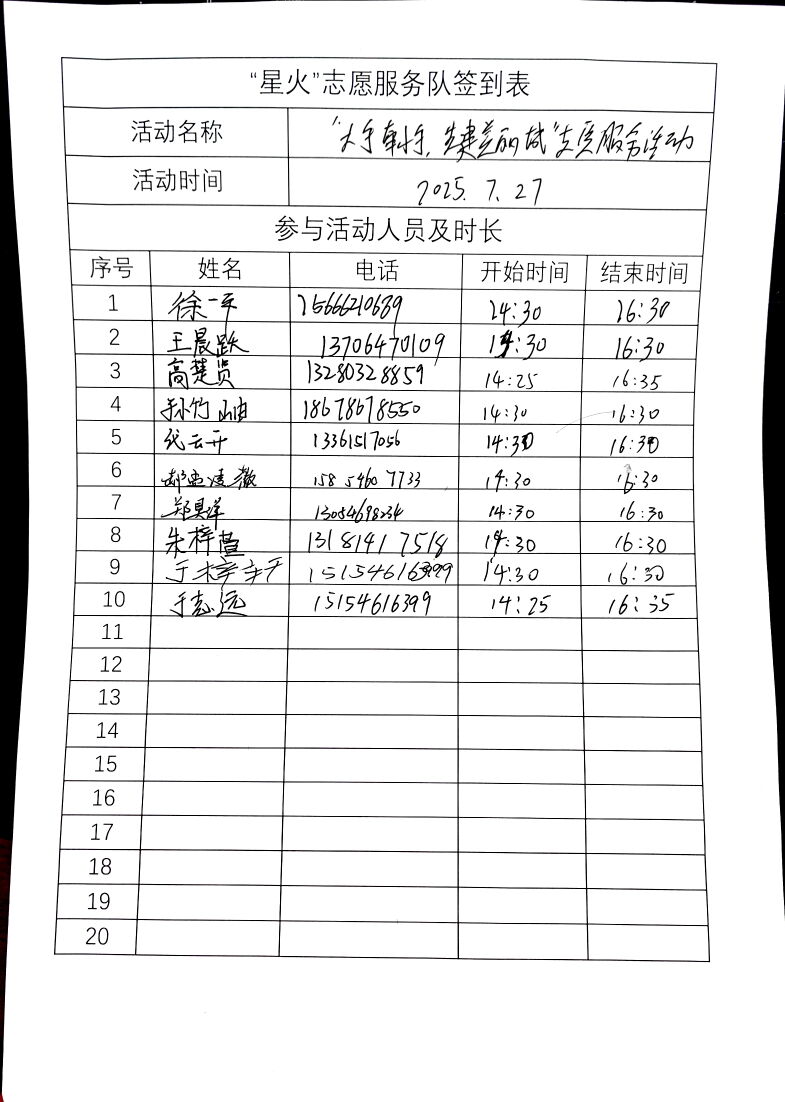 “星火”志愿服务队签到表
活动名称 “大手牵小手，共建美丽城”志愿服务活动
活动时间 2025.7.27
参与活动人员及时长
序号 姓名 电话 开始时间 结束时间
1 徐一平 15666210689 14:30 16:30
2 王晨跃 13706470109 14:30 16:30
3 高楚贤 13280328859 14:25 16:35
4 孙竹 18678678550 14:30 16:30
5 代云开 13361517056 14:30 16:30
6 158 5460 7733 14:30 16:30
7 郑昊洋 13054698234 14:30 16:30
8 朱梓萱 13181417518 14:30 16:30
9 于梓轩 15154616399 14:30 16:30
10 于志远 15154616399 14:25 16:35
11
12
13
14
15
16
17
18
19
20